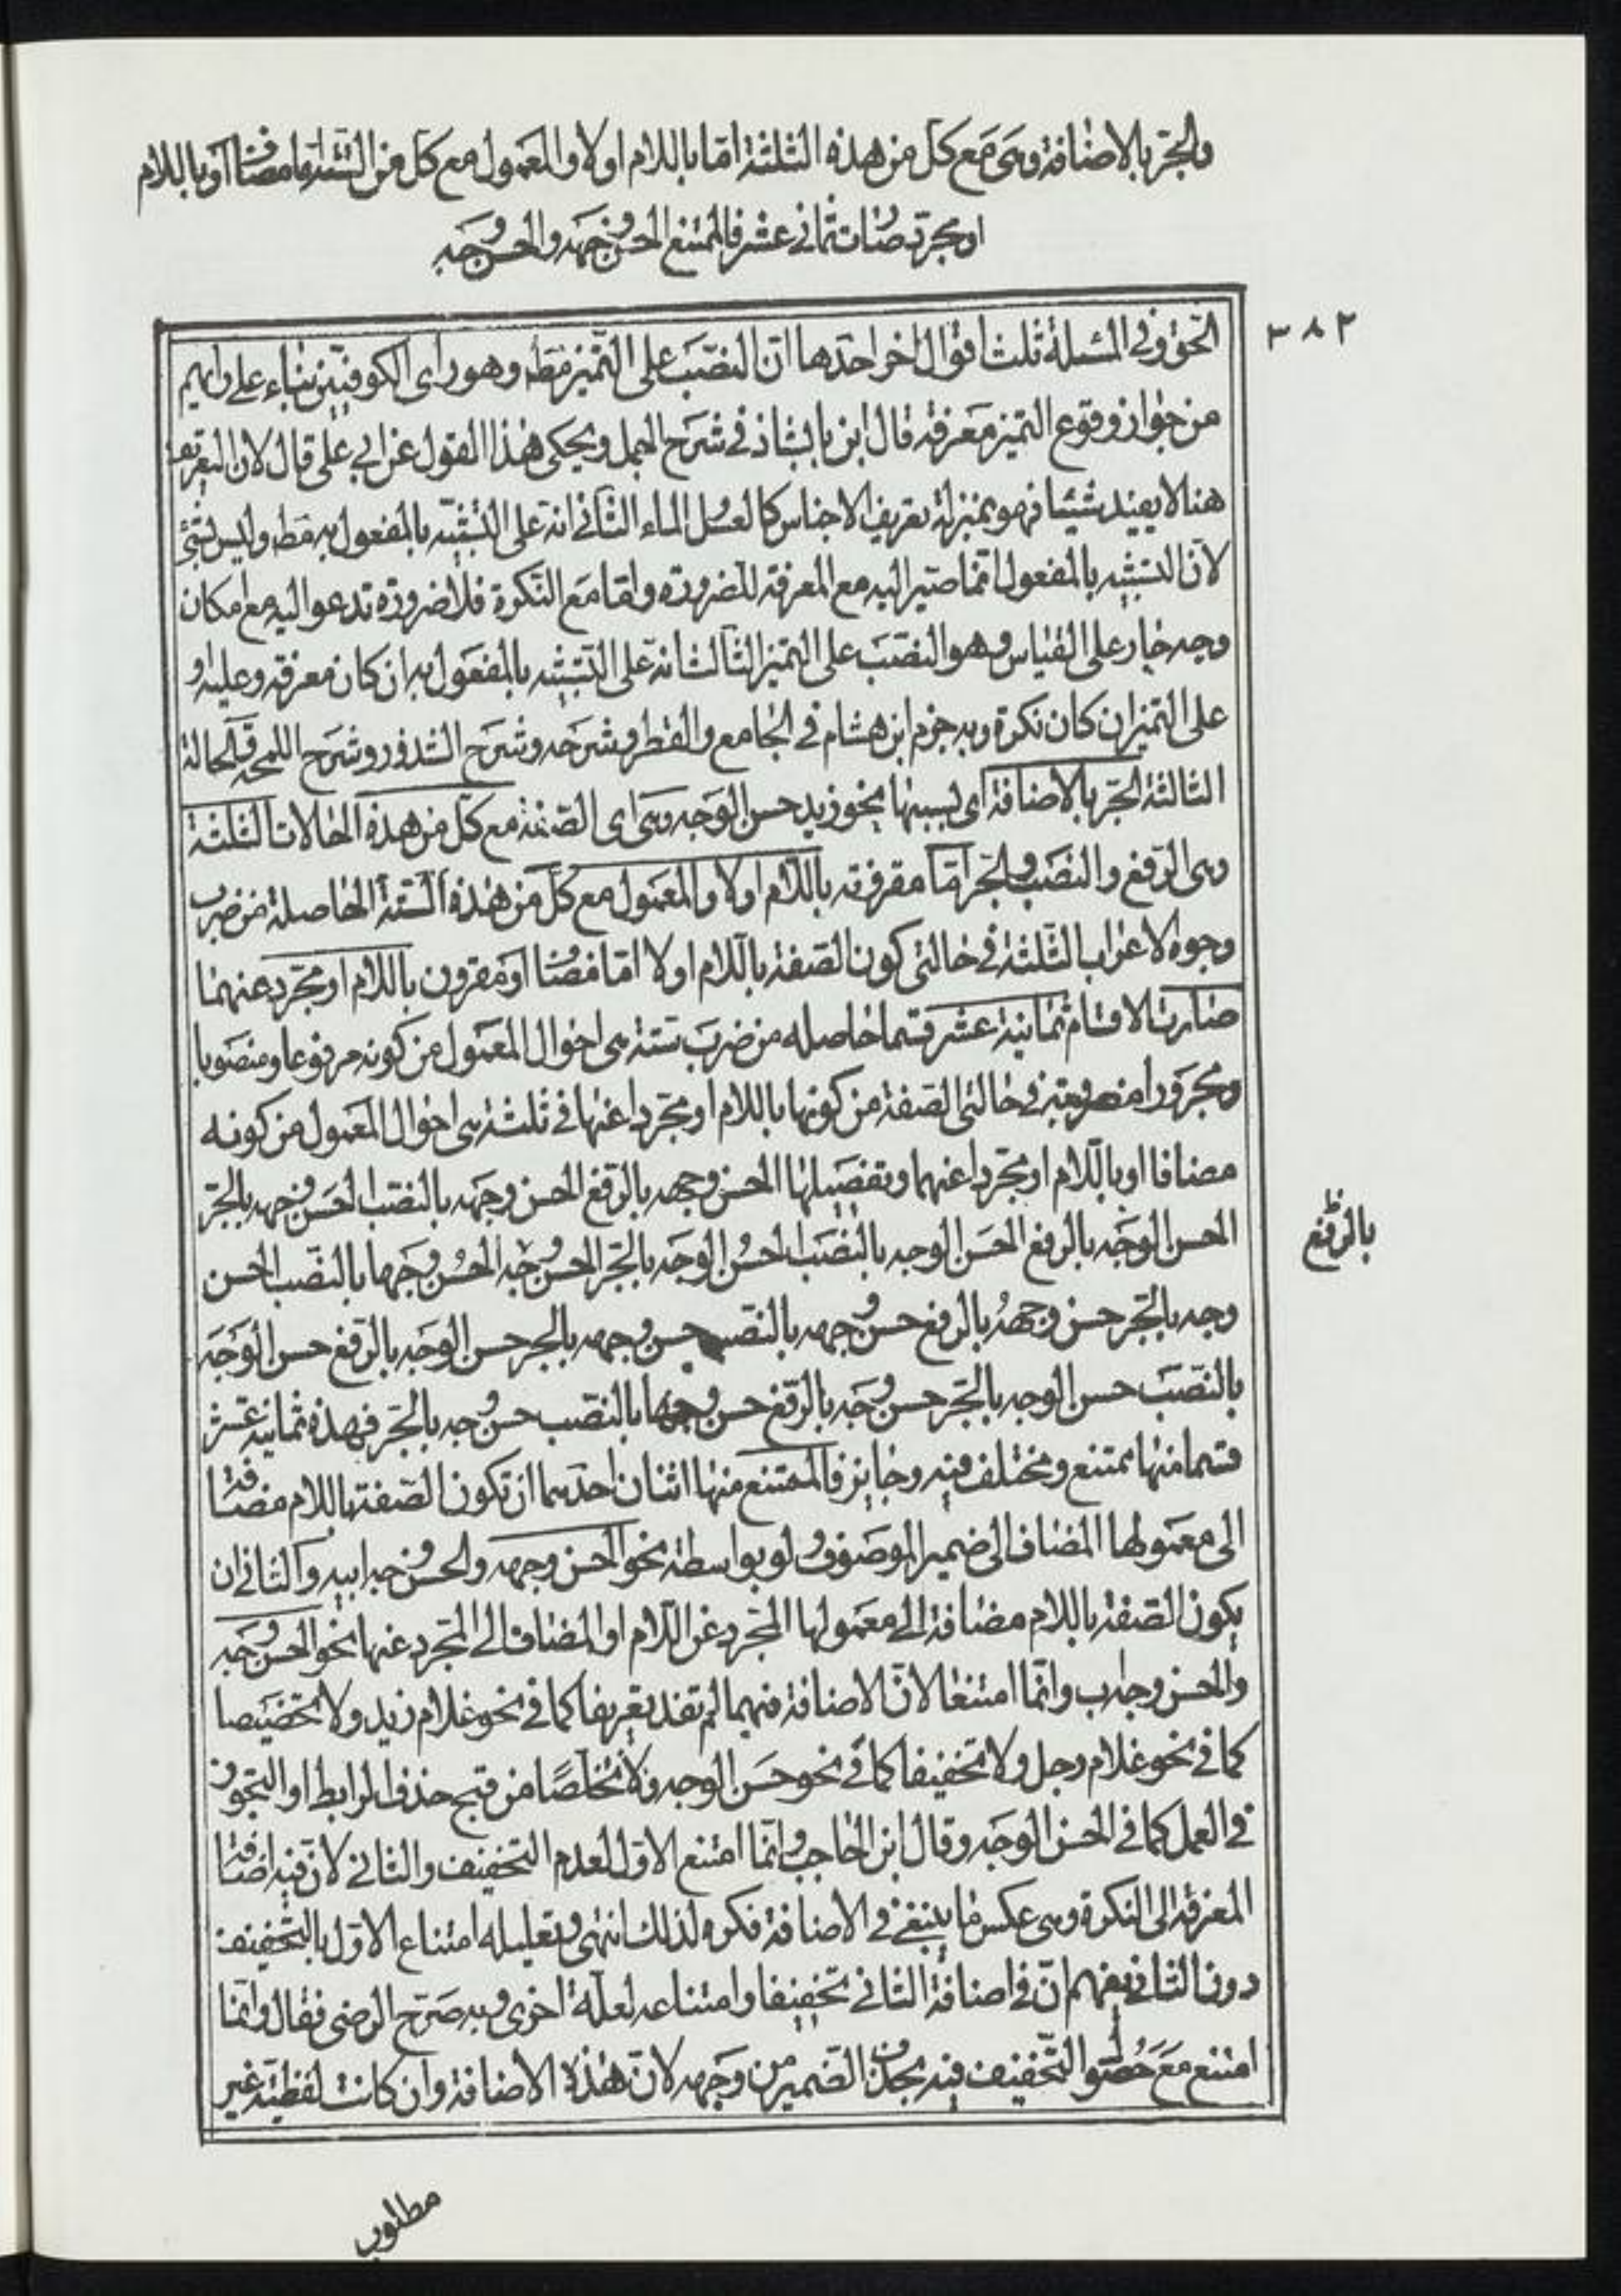 والجرّ بالاضافة وهى مع كل من هذه الثلثة امّا باللام اولا والمعمول مع كل من الستّة امّا مضافا او باللام
او مجرّد صارت ثمانى عشر فالممتنع الحسن وجهه والحسن وجه
٣٨٢
الحق وفى المسئلة ثلث اقوال اخر احدها انّ النصب على التّميز فقط وهو راى الكوفيّين بناء على رايهم
من جواز وقوع التميز معرفة قال ابن بابشاذ فى شرح الجمل ويحكى هذا القول عن ابى على قال لان التعريف
هنا لا يفيد شيئا فهو بمنزلة تعريف الاجناس كالعسل الماء الثّانى انّه على التّشبيه بالمفعول به فقط وليس بشئ
لانّ التشبيه بالمفعول انّما صير اليه مع المعرفة للضرورة وامّا مع النّكرة فلا ضرورة تدعوا اليه مع امكان
وجه جار على القياس وهو النصب على التميز الثّالث انّه على التّشبيه بالمفعول به ان كان معرفة وعليه او
على التميز ان كان نكرة وبه جزم ابن هشام فى الجامع والقطر وشرحه وشرح الشذور وشرح اللمحة والحالة
الثالثة الجرّ بالاضافة اى بسببها نحو زيد حسن الوجه وهى اى الصّفة مع كلّ من هذه الحالات الثلثة
وهى الرّفع والنصب والجرّ امّا مقرونة باللّام اولا والمعمول مع كلّ من هذه السّتة الحاصلة من ضرب
وجوه الاعراب الثّلثة فى حالتى كون الصّفة باللّام اولا امّا مضافا او مقرون باللّام او مجرّد عنهما
صارت الاقسام ثمانية عشر قسما حاصله من ضرب ستة هى احوال المعمول من كونه مرفوعا ومنصوبا
ومجرورا مضروبة فى حالتى الصّفة من كونها باللام او مجرّدا عنها فى ثلثة هى احوال المعمول من كونه
مضافا او باللّام او مجرّدا عنهما وتفصيلها الحسن وجهه بالرّفع الحسن وجهه بالنصب الحسن وجهه بالجرّ
الحسن الوجه بالرفع الحسن الوجه بالنصب الحسن الوجه بالجرّ الحسن وجه الحسن وجها بالنصب الحسن
بالرّفع
وجه بالجرّ حسن وجهه بالرفع حسن وجهه بالنصب حسن وجهه بالجر حسن الوجه بالرّفع حسن الوجه
بالنصب حسن الوجه بالجرّ حسن وجه بالرّفع حسن وجها بالنصّب حسن وجه بالجرّ فهذه ثمانية عشر
قسما منها ممتنع ومختلف فيه وجايز فالممتنع منها اثنان احدهما ان تكون الصّفة باللام مضافة
الى معمولها المضاف الى ضمير الموصوف ولو بواسطة نحو الحسن وجهه والحسن وجه ابيه والثانى ان
يكون الصّفة باللام مضافة الى معمولها المجرّد عن اللّام او المضاف الى المجرد عنها نحو الحسن وجه
والحسن وجه اب وانّما امتنعا لانّ الاضافة فيهما لم تفد تعريفا كما فى نحو غلام زيد ولا تخصيصا
كما فى نحو غلام رجل ولا تخفيفا كما فى نحو حسن الوجه ولا تخلّصًا من قبح حذف الرابط او التجوّز
فى العمل كما فى الحسن الوجه وقال ابن الحاجب وانّما امتنع الاوّل لعدم التخفيف والثانى لانّ فيه اضافة
المعرفة الى النكرة وهى عكس ما ينبغى فى الاضافة فكره لذلك انتهى وتعليله امتناع الاوّل بالتّخفيف
دون الثانى يفهم انّ فى اضافة الثانى تخفيفا وامتناعه لعلّة اخرى وبه صرّح الرضى فقال وانّما
امتنع مع حصول التّخفيف فيه بحذف الضمير من وجهه لانّ هذه الاضافة وان كانت لفظيّة غير
مطلوب